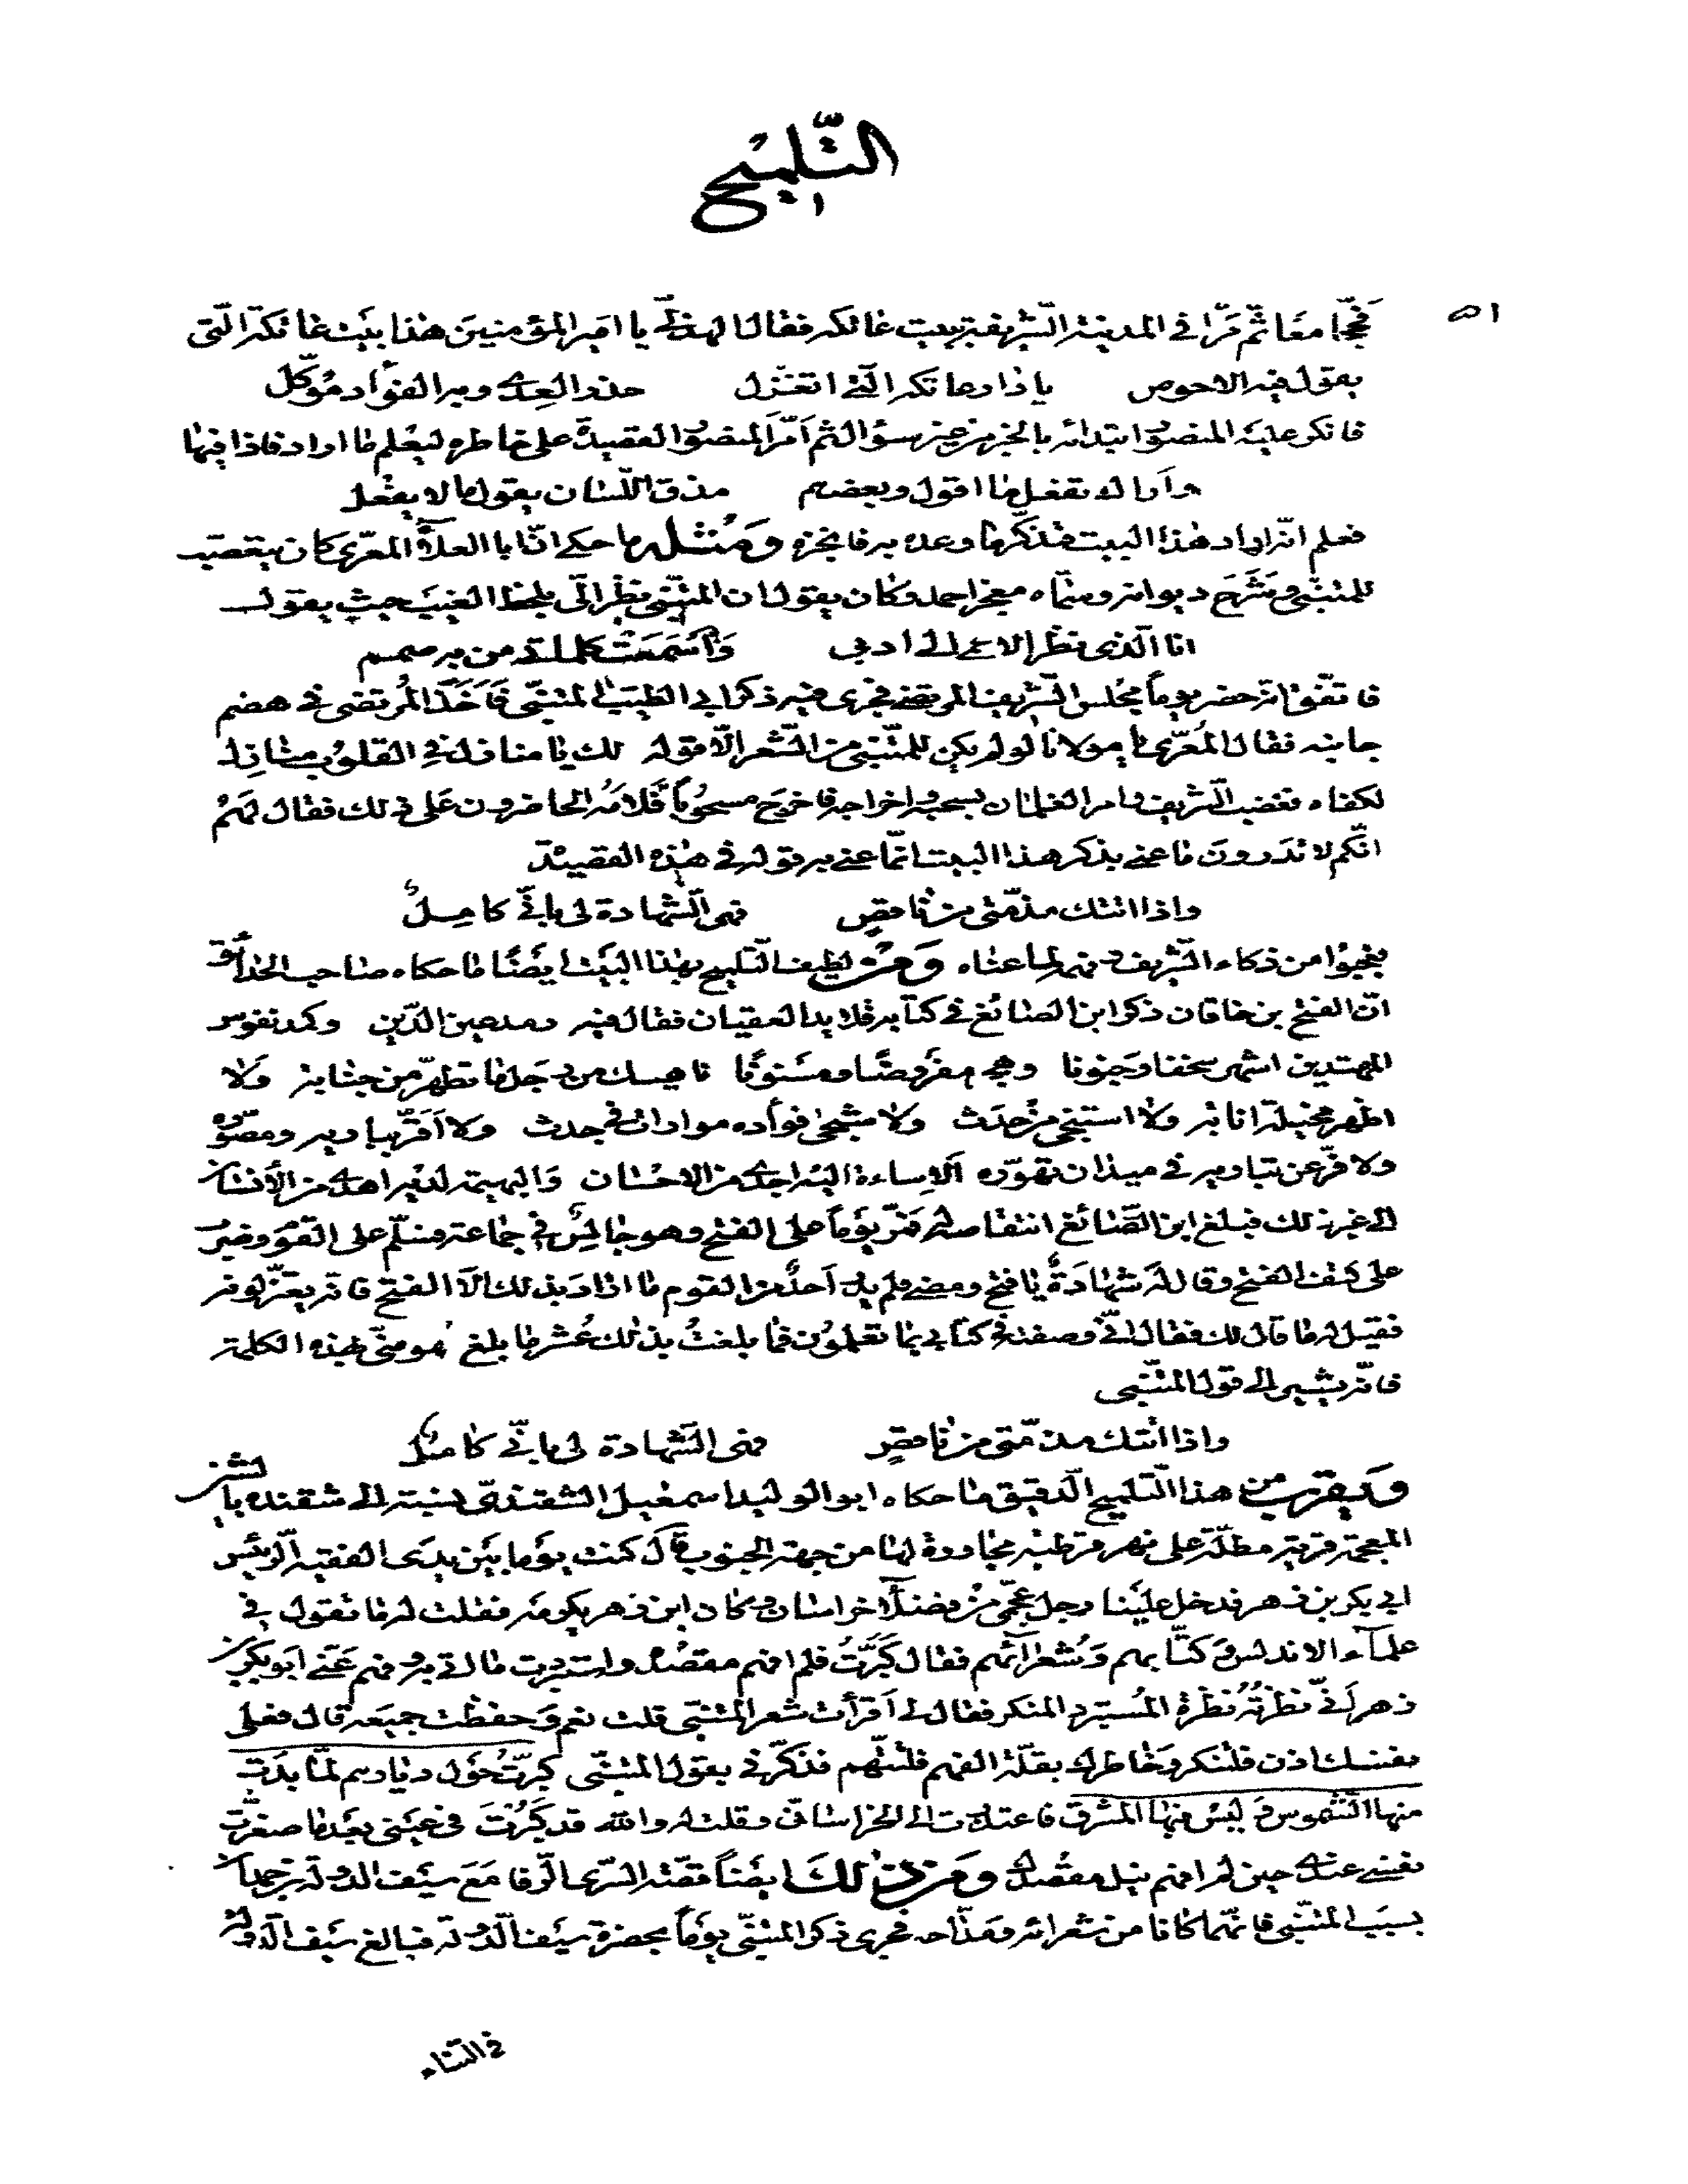 التلميح
٥١
فحجّا معًا ثم مرّا في المدينة الشريفة ببيت عاتكة فقال الهذلي يا امير المؤمنين هذا بيت عاتكة الّتي
يقول فيه الاحوص يا دار عاتكة الّتي اتعزّل حذر العدى وبه الفؤاد موكّل
فانكر عليه المنصور ابتدائه بالخبر من غير سؤال ثم امرّ المنصور القصيدة على خاطره ليعلم ما اراد فاذا فيها
واراك تفعل ما اقول وبعضهم مذق اللّسان يقول ما لا يفعل
فعلم انّه اراد هذا البيت فتذكّر ما وعده به فانجزه ومثله ما حكي انّ ابا العلآء المعرّي كان يتعصّب
للمتنبّي وشرح ديوانه وسمّاه معجز احمد وكان يقول ان المتنبّي نظر الّي بلحظ الغيب حيث يقول
انا الّذي نظر الاعمى الى ادبي واسمعت كلماتي من به صمم
فاتّفق انّه حضر يوماً مجلس الشّريف المرتضى فجرى فيه ذكر ابي الطيّب المتنبّي فأخذ المرتضى في هضم
جانبه فقال المعرّي يا مولانا لو لم يكن للمتنبّي من الشّعر الّا قوله لك يا منازل في القلوب منازل
لكفاه فغضب الشّريف وامر الغلمان بسحبه واخراجه فاخرج مسحوباً فلامه الحاضرون على ذلك فقال لهم
انّكم لا تدرون ما عنى بذكر هذا البيت انّما عنى به قوله في هذه القصيدة
واذا اتتك مذمّتي من ناقص فهي الشّهادة لي بانّي كامل
فعجبوا من ذكاء الشّريف وفهمه لما عناه ومن لطيف التّلميح بهذا البيت ايضًا ما حكاه صاحب الحدائق
انّ الفتح بن خاقان ذكر ابن الصائغ في كتابه قلايد العقيان فقال فيه رمد عين الدّين وكمد نفوس
المهتدين اشتهر سخفا وجنونا وهجر مفروضًا ومسنونًا ناهيك من رجل ما تطهّر من جنابة ولا
اظهر مخيلة انابة ولا استنجى من حدث ولا شجى فؤاده موارات في جدث ولا اقرّ بباريه ومصوّره
ولا فرّ عن تباريه في ميدان تهوّره الاساءة اليه اجدى من الاحسان والبهيمة لديه اهدى من الأنسان
الى غير ذلك فبلغ ابن الصّائغ انتقاصه له فمرّ يوماً على الفتح وهو جالس في جماعة فسلّم على القوم وضرب
على كتف الفتح وقال له شهادة يا فتح ومضى فلم يدر احد من القوم ما اراد بذلك الّا الفتح فانه تغيّر لونه
فقيل له ما قال لك فقال انّي وصفته في كتابي بما تعلمون فما بلغت بذلك عشر ما بلغ هو منّي بهذه الكلمة
فانّه يشير الى قول المتنبّي
واذا اتتك مذمّتي من ناقص فهي الشّهادة لي بانّي كامل
ويقرب من هذا التّلميح الّدقيق ما حكاه ابو الوليد اسمعيل الشقندي نسبته الى شقنده بالشّين
المعجمة قرية مطلّة على نهر قرطبة مجاورة لها من جهة الجنوب قال كنت يوما بين يدي الفقيه الرّئيس
ابي بكر بن زهر فدخل علينا رجل عجمّي من فضلآء خراسان وكان ابن زهر يكرمه فقلت له ما تقول في
علمآء الاندلس وكتّابهم وشعرائهم فقال كبّرت فلم افهم مقصده واستبردت ما اتى به وفهم عنّي ابو بكر بن
زهر انّي نظرته نظرة المستبرد المنكر فقال لي اقرأت شعر المتنبّي قلت نعم وحفظت جميعه قال فعلى
نفسك اذن فلتنكر وخاطرك بقلّة الفهم فلتتّهم فذكّرني بقول المتنبّي كبّرت حول ديارهم لمّا بدت
منها الشّموس وليس فيها المشرق فاعتذرت الى الخراساني وقلت له والله قد كبرت في عيني بعد ما صغرت
نفسي عندي حين لم افهم نبل مقصدك ومن ذلك ايضاً قصّة السّري الرّفا مع سيف الدولة بن حمدان
بسبب المتنبّي فانّهما كانا من شعرائه ومدّاحه فجرى ذكر المتنبّي يوماً بحضرة سيف الدّولة فبالغ سيف الدّولة
في الثناء